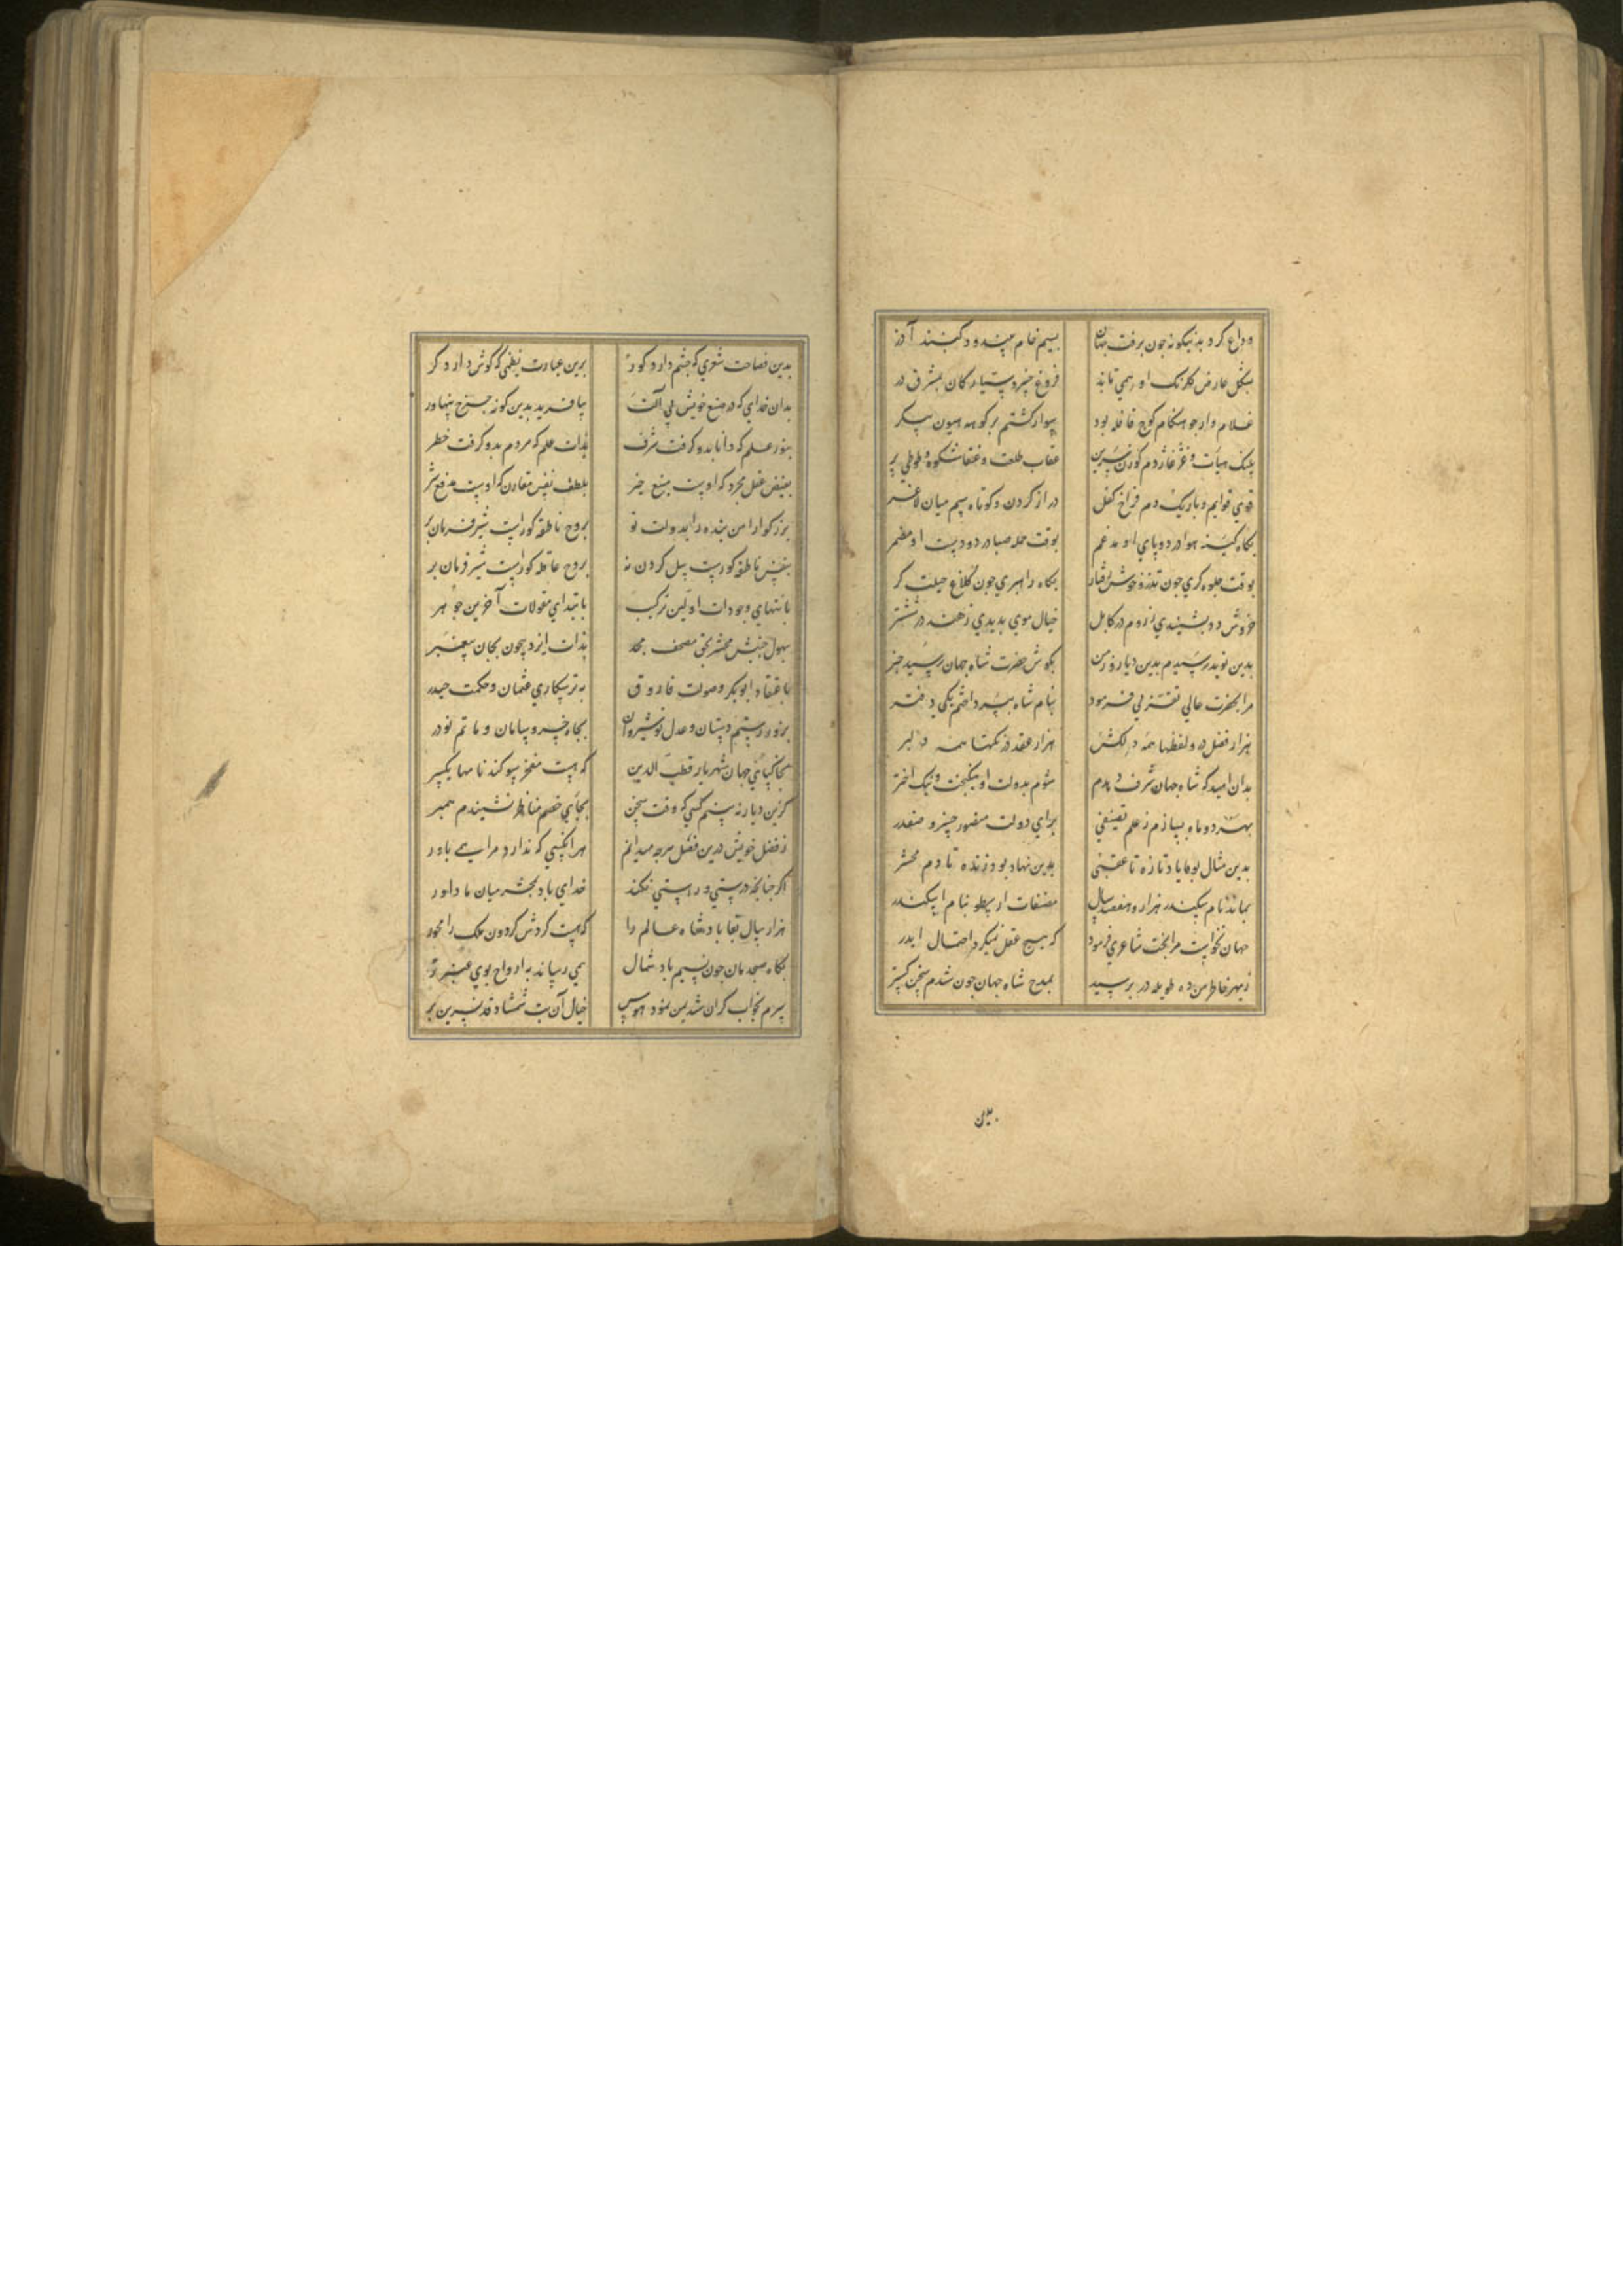 وداع کرد بدینکونه جون برفت جهان بسیم خام بیندود کنبند آزر
بشکل عارض کلرنک او همی تابد فروغ خسرو سیارکان بمشرق در
غلام وار جو هنکام کوچ قافله بود سوار کشتم بر کوه هیون پیکر
پلنک هیات و غژغاو دم کوزن سرین عقاب طلعت و عنقا شکوه و طوطی پر
قوی قوایم و باریک دم فراخ کفل دراز کردن و کوتاه سم میان لاغر
بکاه کینه هوا در دو پای او مدغم بوقت حمله صبا در دو دست او مضمر
بوقت جلوه کری جون تذرو خوش رفتار بکاه راهبری جون کلاغ حیلت کر
خروش دد بشنیدی ز روم در کابل خیال موی بدیدی ز هند در ششتر
بدین نوید رسیدم بدین دیار و زمن بکوش حضرت شاه جهان رسید خبر
مرا بحضرت عالی تقربی فرمود بنام شاه بپرداختم یکی دفتر
هزار فصل در و لفظها همه دلکش هزار عقد در نکتها همه دلبر
بدان امید که شاه جهان شرف دهدم شوم بدولت او نیکبخت و نیک اختر
بهر دو ماه بسازم ز علم تصنیفی برای دولت منصور خسرو صفدر
بدین مثال بود یاد تازه تا عقبی بدین نهاد بود زنده تا دم محشر
بماند نام سکندر هزار و هفصد سال مصنفات ارسطو بنام اسکندر
جهان نخواست مرا بخت شاعری فرمود که هیچ عقل نمیکرد احتمال ایدر
ز بهر خاطر من ده طویله در برسید بمدح شاه جهان جون شدم سخن کستر
بدین
بدین فصاحت شعری که جشم دارد کور برین عبارت نظمی که کوش دارد کر
بدان خدای که در صنع خویش بی آلت بیافرید بدین کونه جرخ پهناور
بنور علم که دانا بدو کرفت شرف بذات علم که مردم بدو کرفت خطر
بفیض عقل مجرد که اوست منبع خیر بلطف نفس مقارن که اوست مدفع شر
بزرکوارا من بنده را بدولت تو بروح ناطقه کوراست شیر فرمان بر
بنفس ناطقه کوراست پیل کردن نه بروح عاقله کوراست شیر فرمان بر
بانتهای وجودات اولین ترکیب بابتدای مقولات آخرین جوهر
بهول جنبش محشر بحق مصحف مجد بذات ایزد بیجون بجان پیغمبر
باعتقاد ابوبکر و صولت فاروق به ترسکاری عثمان و حکمت حیدر
بزور رستم دستان و عدل نوشیروان بجاه خسرو ساسان و ماتم نوذر
بخاکپای جهان شهریار قطب الدین که هست مفخر سوکندنامها یکسر
کزین دیار نه بینم کسی که وقت سخن بجای خصم مناظر نشیندم همبر
ز فضل خویش درین فصل هرجه میدانم هر آنکسی که ندارد مرا همی باور
اکر جنانجه درستی و راستی نکند خدای باد بحشر میان ما داور
هزار سال بقا باد شاه عالم را که هست کردش کردون ملک را محور
بکاه صبحدمان جون نسیم باد شمال همی رساند به ارواح بوی عنبر تر
سرم بخواب کران شد بمن نمود هوس خیال آن بت شمشاد قد نسرین بر